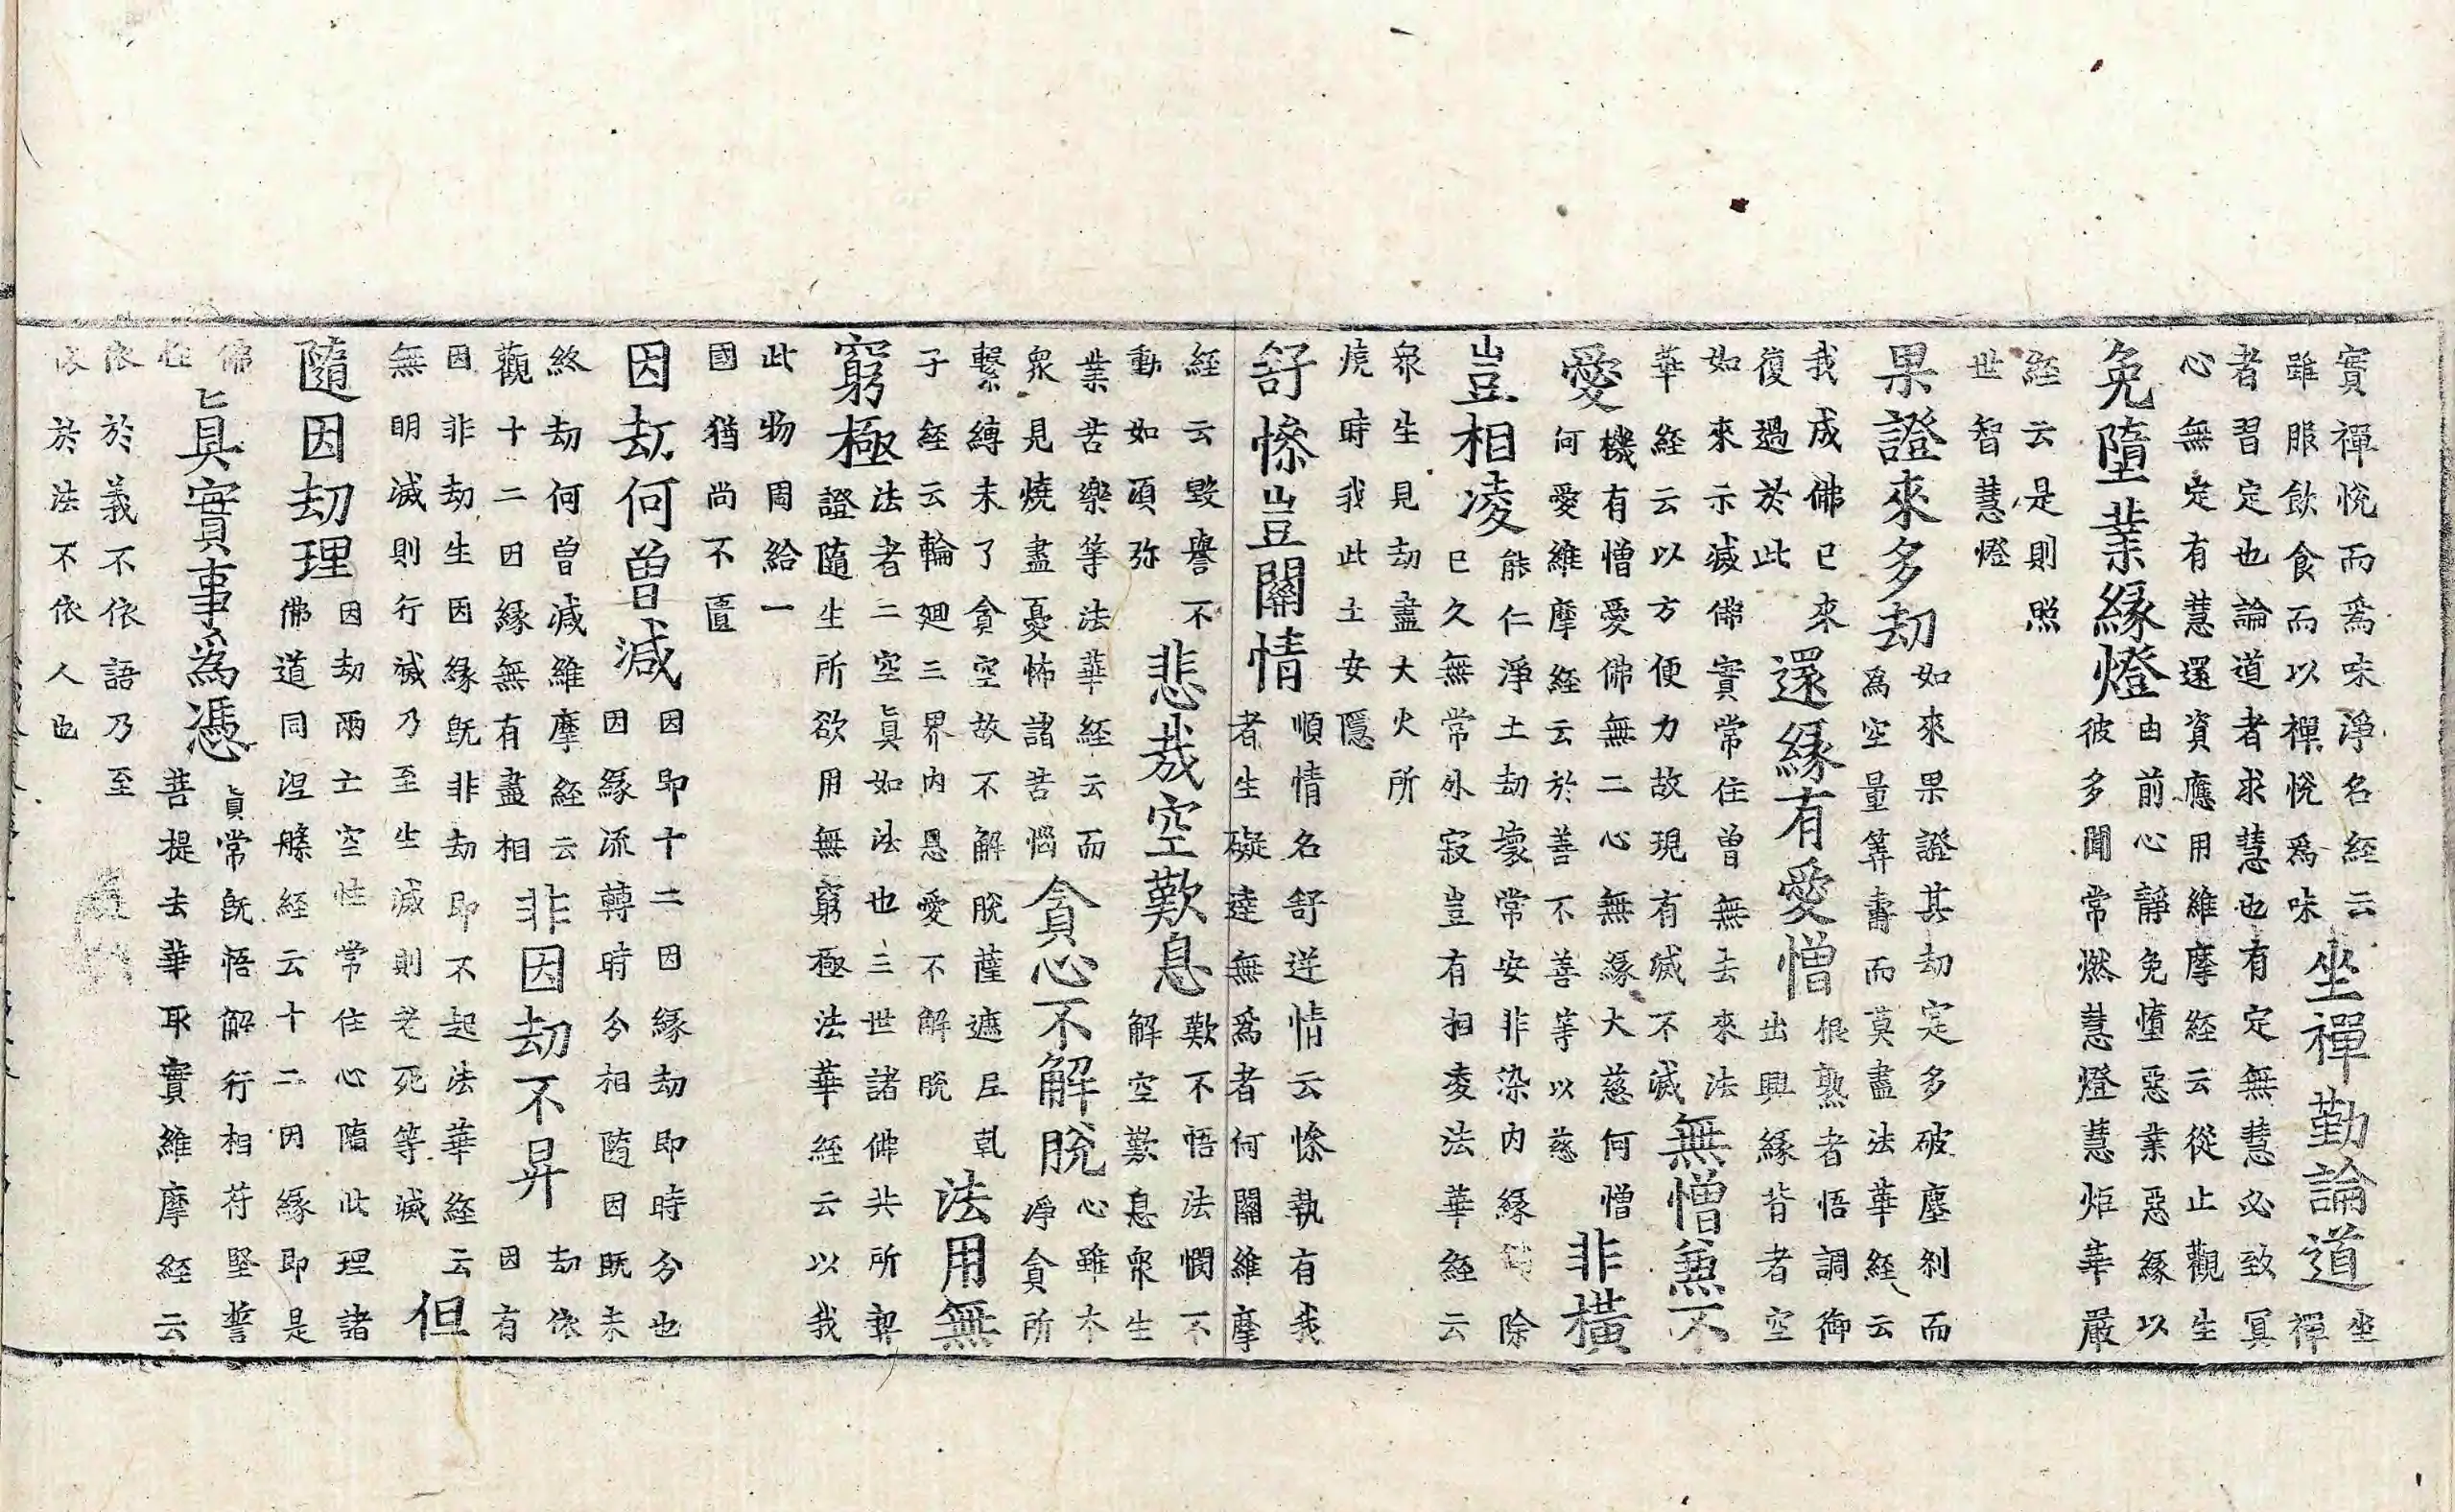 實禪悅而爲味淨名經云
雖服飲食而以禪悅爲味
坐禪勤論道
坐
禪
者習定也論道者求慧也有定無慧必致冥
心無定有慧還資應用維摩經云從止觀生
免墮業緣燈
由前心靜免墮惡業惡緣以
彼多聞常燃慧燈慧炬華嚴
經云是則照
世智慧燈
果證來多劫
如來果證其劫定多破塵刹而
爲空量筭壽而莫盡法華經云
我成佛已來
復過於此
還緣有愛憎
根熟者悟調御
出興緣背者空
如來示滅佛實常住曾無去來法
華經云以方便力故現有滅不滅
無憎兼不
愛
機有憎愛佛無二心無緣大慈何憎
何愛維摩經云於善不善等以慈
非橫
豈相凌
能仁淨土劫壞常安非染内緣除
已久無常外寂豈有相凌法華經云
衆生見劫盡大火所
燒時我此土安隱
舒慘豈關情
順情名舒逆情云慘執有我
者生礙達無爲者何關維摩
經云毀譽不
動如須弥
悲哉空歎息
歎不悟法憫不
解空歎息衆生
業苦樂等法華經云而
衆見燒盡憂怖諸苦惱
貪心不解脫
心雖本
淨貪所
繫縛未了貪空故不解脫薩遮尼乹
子經云輪廻三界内恩愛不解脫
法用無
窮極
法者二空真如法也三世諸佛共所契
證隨生所欲用無窮極法華經云以我
此物周給一
國猶尚不匱
因劫何曾減
因即十二因緣劫即時分也
因緣流轉時分相隨因既未
終劫何曾減維摩經云
觀十二因緣無有盡相
非因劫不昇
劫依
因有
因非劫生因緣既非劫即不起法華經云
無明滅則行滅乃至生滅則老死等滅
但
隨因劫理
因劫兩亡空性常住心隨此理諸
佛道同涅槃經云十二因緣即是
佛
性
真實事爲憑
真常既悟解行相符堅誓
菩提去華取實維摩經云
依於義不依語乃至
依於法不依人也